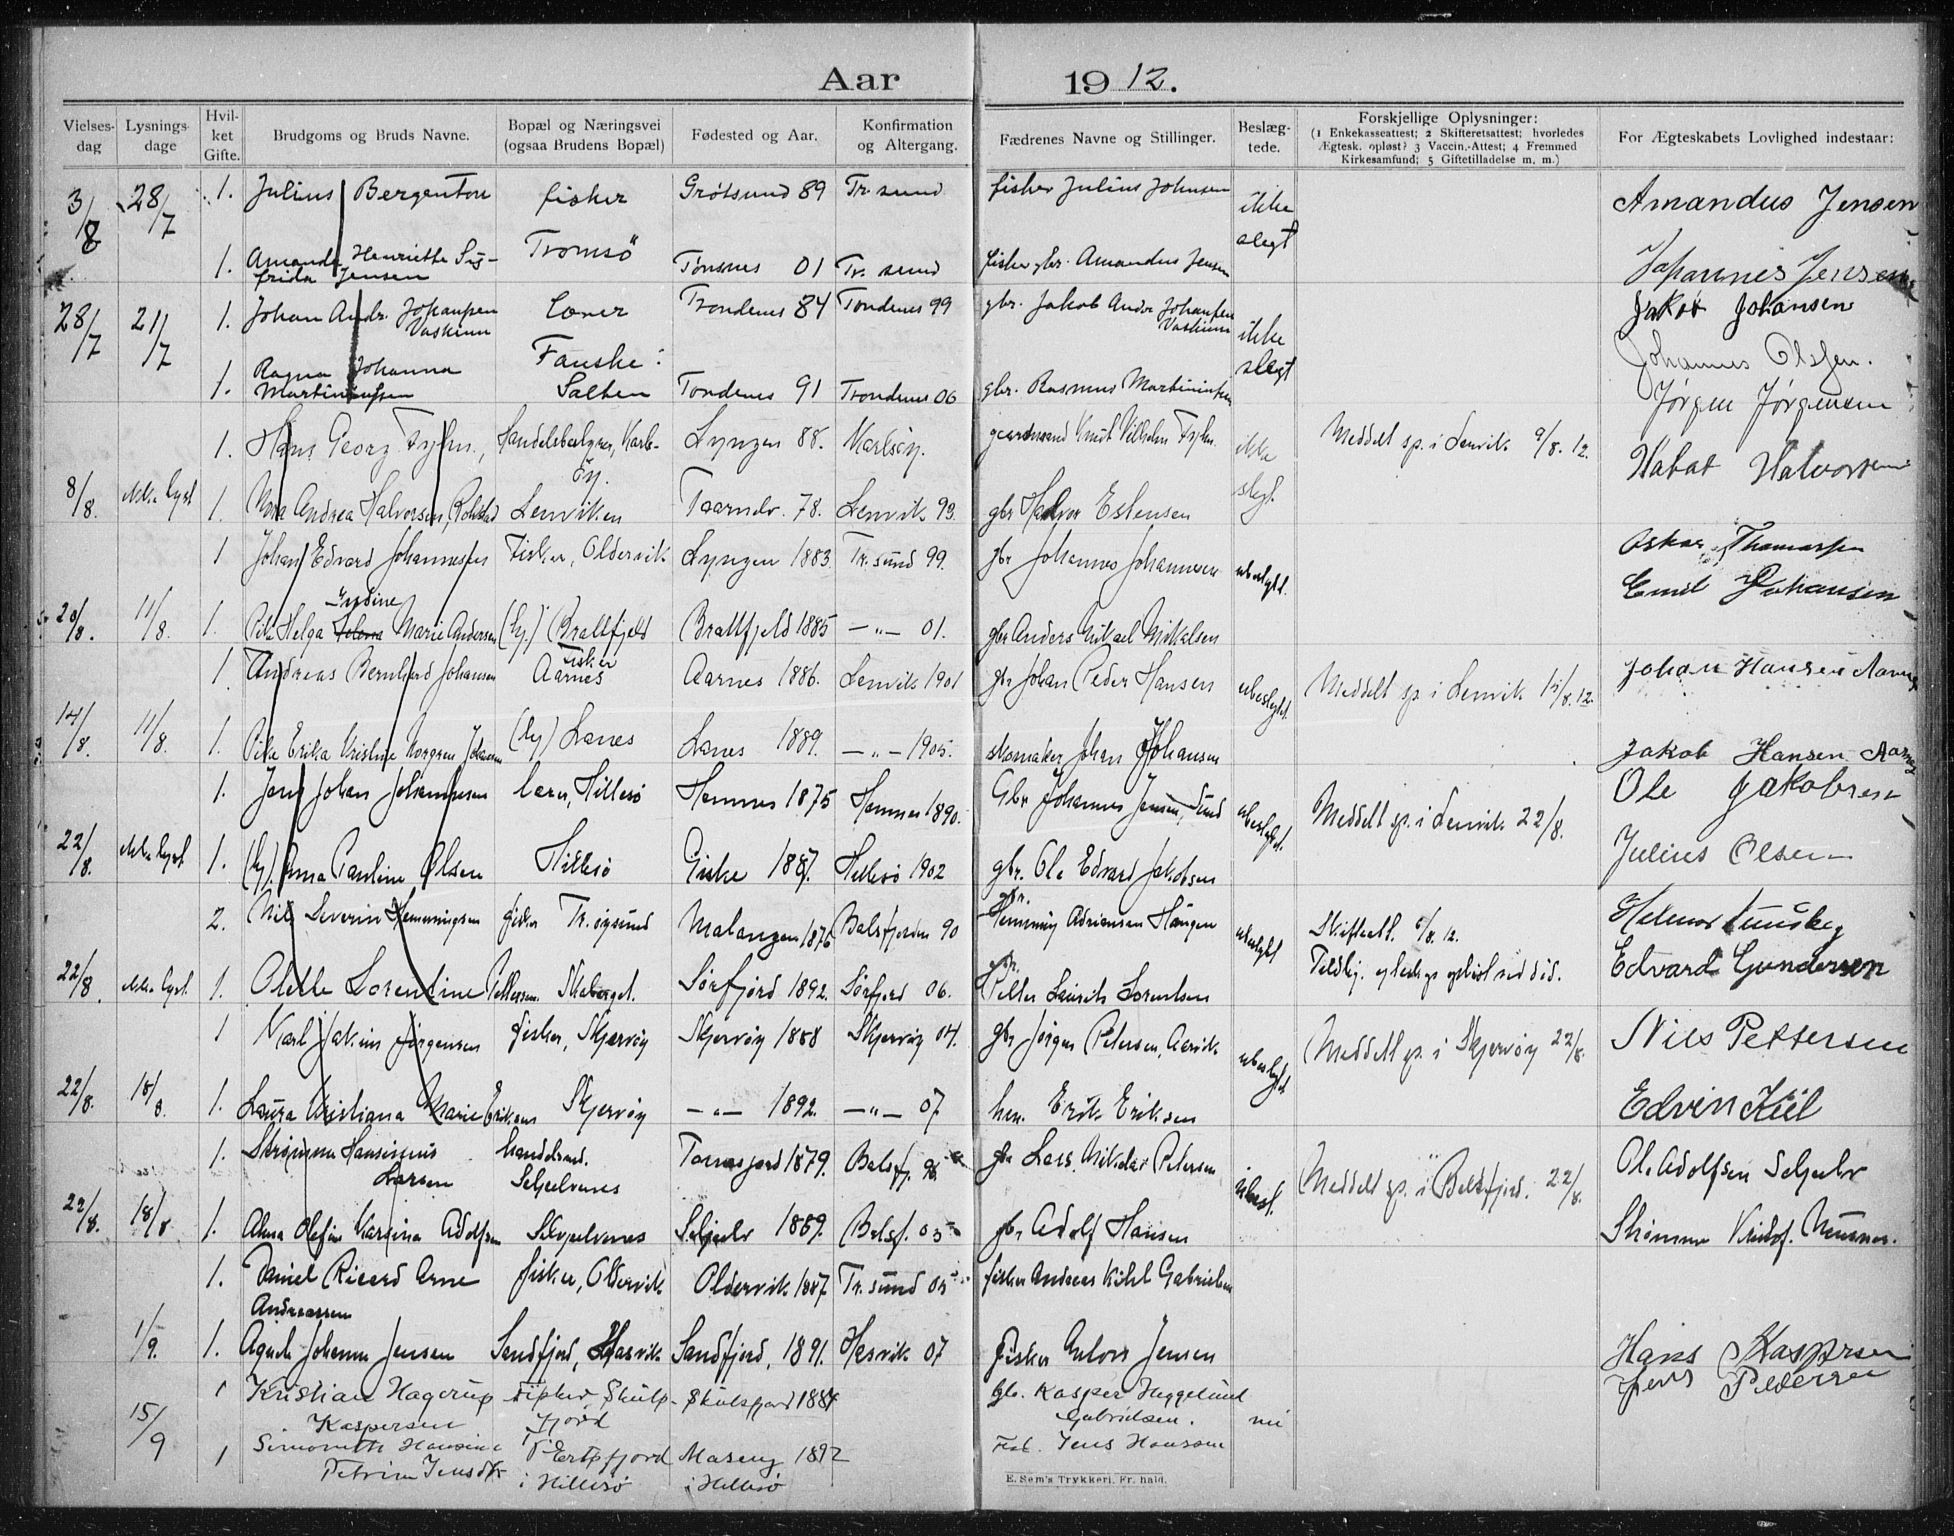 Aar 1912.
Vielses-dag | Lysnings-dage | Hvil-ket Gifte. | Brudgoms og Bruds Navne. | Bopæl og Næringsvei (ogsaa Brudens Bopæl) | Fødested og Aar. | Konfirmation og Altergang. | Fædrenes Navne og Stillinger. | Beslæg-tede. | Forskjellige Oplysninger: (1 Enkekasseattest; 2 Skifteretsattest; hvorledes Ægtesk. opløst? 3 Vaccin.-Attest; 4 Fremmed Kirkesamfund; 5 Giftetilladelse m. m.) | For Ægteskabets Lovlighed indestaar:
3/8 28/7 1. Julius Bergenton fisker Grötsund 89 Tr. sund fisker Julius Johnsen ikke slegt Amandus Jensen
Tromsö
1. Amanda Henriette Sig-
frida Jensen Tönsnes 01 Tr. sund fisker, gbr. Amandus Jensen Johannes Jensen
28/7 21/7 1. Johan Andr. Johansen Lærer Trondenes 84 Tondenes 99 gbr. Jakob Andr Johansen ikke slegt Jakob Johansen
Fauske i Johannes Olsen.
1. Ragna Johanna
Martinussen Salten Tondenes 91 Trondenes 06 gbr. Rasmus Martinussen Jørgen Jørgensen
1. Hans Georg Fyhn, Handelsbestyrer, Karls-
öy. Lyngen 88. Karlsöy. gaardmand Knut Vilhelm Fyhn. ikke slegt. Meddelt sp. i Lenvik 9/8. 12. Habat Halvorsen
8/8. ikke lyst 1. Andrea Halvorsen, Lenviken 78. Lenvik 93. gbr Halvor Estensen
1 Johan Edvard Johannessen Fisker, Oldervik Lyngen 1883. Tr. sund 99. gbr Johannes Johannesen ubeslegtet. Oskar Thomassen
Emil Johansen
20/8. 11/8. 1. Pike Helga Marie Andersen (hj.) Brattfjeld Brattfjeld 1885 —"— 01. gbr Anders Mikael Mikalsen
1. Andreas Bernhard Johansen Fisker Aarnes Aarnes 1886. Lenvik 1901 gbr Johan Peder Hansen ubeslegtet. Meddelt sp. i Lenvik /8. 12. Johan Hansen
14/8. 11/8. 1. Pike Erika Kristine Norgren Johansen (hj) Lanes Lanes 1889. —"— 1905. skomaker Johan Johansen Jakob Hansen
1. Jens Johan Johannesen Lærer, Hillesö Hemnes 1875 Hemnes 1890. Gbr Johannes Jensen, Sund ubeslegtet. Meddelt sp. i Lenvik 22/8. Ole Jakobsen
22/8. ikke lyst 1. (hj). Anna Pauline Olsen Hillesö Giske 1887. Hillesö 1902 gbr. Ole Edvard Jakobsen Julius Olsen
2. Nils Severin Hemmingsen fisker Tr. öysund Malangen 1876 Balsfjorden 90 gbr. Hemming Adriansen Haugen ubeslegtet Skifteatt. 6/8. 12. Helmer
22/8. ikke lyst. 1. Odelle Lorentine Pettersen. Sörfjord 1892. Sörfjord 06. gbr. Petter Laurits Lorentsen Edvard Gundersen
1 Karl Jakim Jørgensen fisker, Skjærvöy Skjervöy 1888 Skjervöy 04. gbr Jørgen Petersen, ubeslegtet Meddelt sp. i Skjervöy 22/8. Nils Pettersen
22/8. 18/8. 1. Laura Kristiana Marie Eriksen Skjervöy —"— 1892. —"— 07 Erik Eriksen Edvin Kiil
1. Strömmen Hansinius
Larsen handelsmd.
Seljelvnes 1879. Balsfj. Lars Nikolai Petersen ubesl. Meddelt sp. i Balsfjord. 22/8. Ole Adolfsen Seljelv
22/8. 18/8 1. Alma Olefine Karsina Adolfsen Seljelvnes Seljelv 1889. Balsf. 05 gbr Adolf Hansen
1. Daniel Ricard Arne
Andreassen fisker, Oldervik Oldervik 1887. Tr. sund 05 fisker Andreas Kihl Gabrielsen
1/9. 1. Agnete Johanna Jensen Sandfjord, Hasvik Sandfjord, 1891. Hasvik 07 fisker Jensen Hans Kaspersen
1 Kristian Hagerup
Kaspersen fisker, Skuls-
fjord Skulsfjord 1884 Gb. Kasper Heggelund
Gabrielsen. nei Jens Pedersen
15/9 1 Simonette Hansine
Petrine Jensdtr Ertsfjord
i Hillesö 1892
i Hillesö Jens Hansen
E. Sem's Trykkeri, Fr. hald.